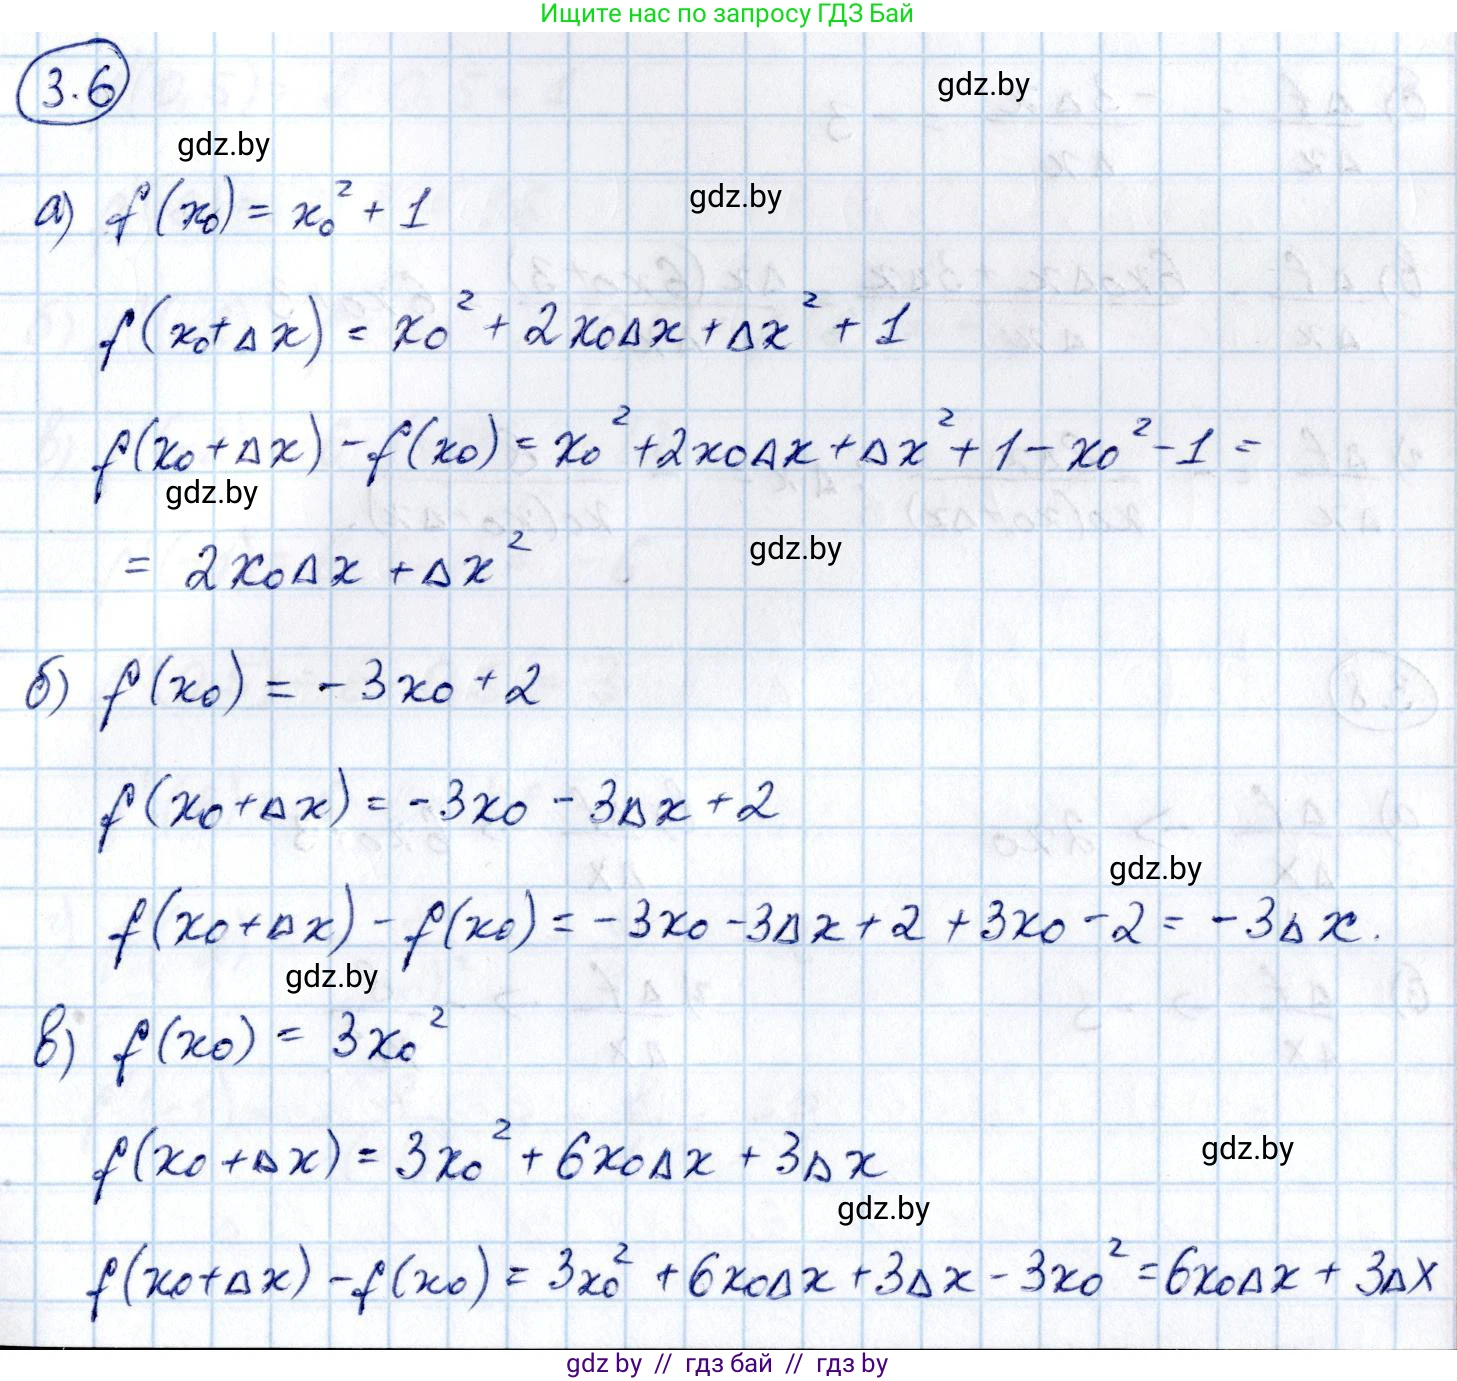 Ищите нас по запросу ГДЗ Бай
3.6
gdz.by
gdz.by
gdz.by
а) f(x₀) = x₀² + 1
f(x₀+Δx) = x₀² + 2x₀Δx + Δx² + 1
f(x₀+Δx) - f(x₀) = x₀² + 2x₀Δx + Δx² + 1 - x₀² - 1 =
gdz.by
= 2x₀Δx + Δx²
gdz.by
б) f(x₀) = -3x₀ + 2
f(x₀+Δx) = -3x₀ - 3Δx + 2
gdz.by
f(x₀+Δx) - f(x₀) = -3x₀ - 3Δx + 2 + 3x₀ - 2 = -3Δx.
gdz.by
в) f(x₀) = 3x₀²
f(x₀+Δx) = 3x₀² + 6x₀Δx + 3Δx
gdz.by
gdz.by
f(x₀+Δx) - f(x₀) = 3x₀² + 6x₀Δx + 3Δx - 3x₀² = 6x₀Δx + 3Δx
gdz by // гдз бай // гдз by